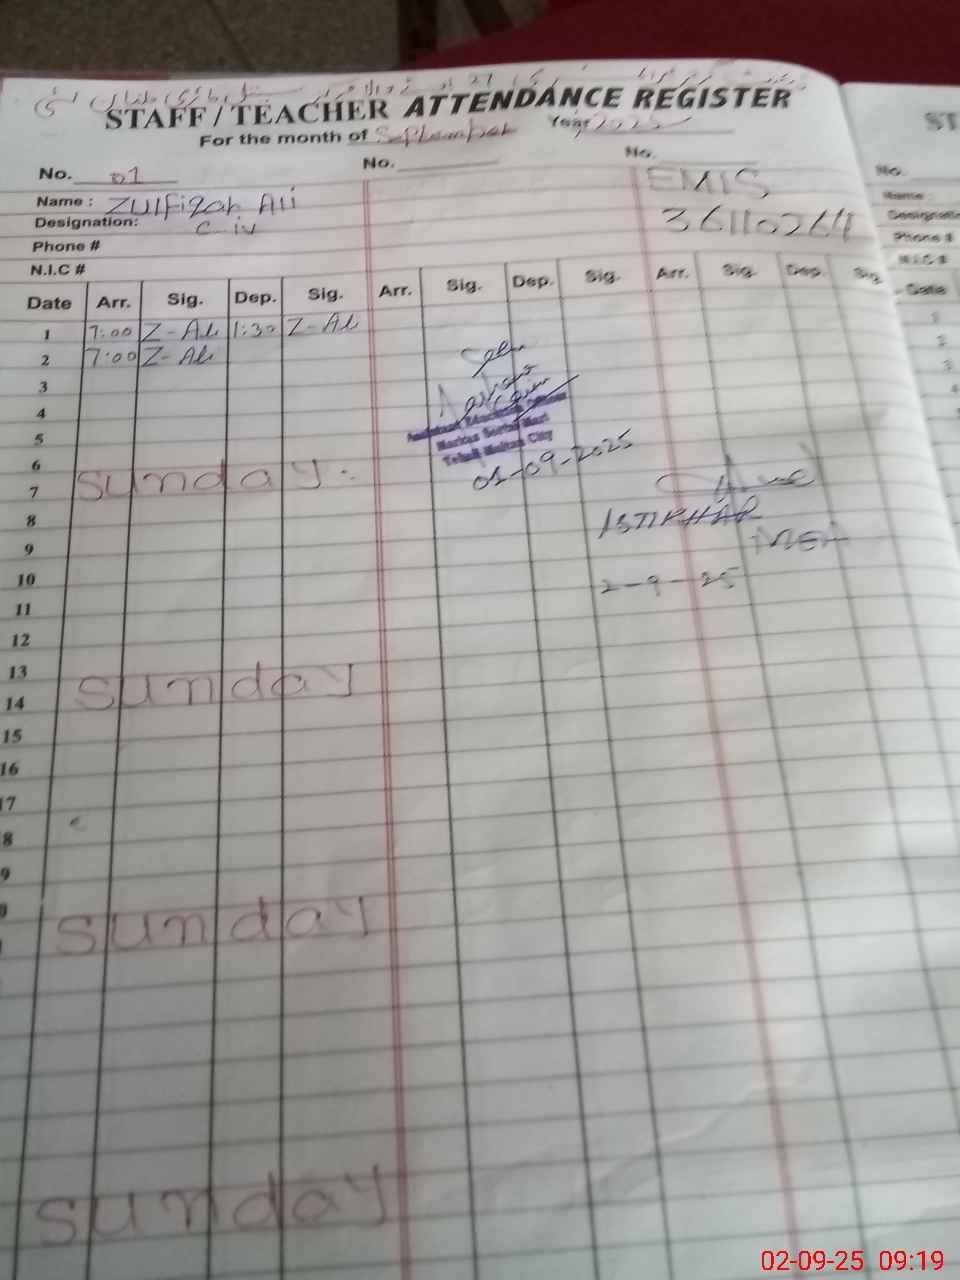 STAFF / TEACHER ATTENDANCE REGISTER
For the month of September Year 2025
No. 01 No. No.
Name : Zulfiqar Ali EMIS
Designation: C-iv 36110264
Phone #
N.I.C #
Date Arr. Sig. Dep. Sig. Arr. Sig. Dep. Sig. Arr. Sig. Dep. Sig.
1 7:00 Z-Ali 1:30 Z-Ali
2 7:00 Z-Ali
3 Seen
4
5
Tehsil Multan City
6 01-09-2025
7 Sunday.
8 ISTIKHAR
9 MEA
10 2-9-25
11
12
13
14 Sunday
15
16
17
8
9
0
Sunday
Sunday
ST
No.
Name :
Phone #
N.I.C #
Date
1
2
3
02-09-25 09:19